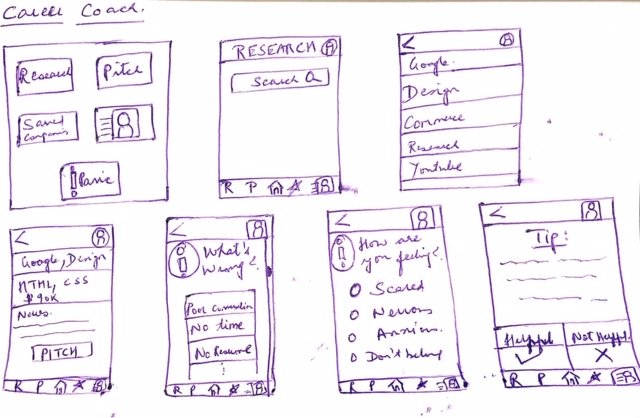 Career Coach.
Research
Pitch
Saved
Companies
! Panic
RESEARCH
Search
R P
<
Google.
Design
Commerce
Research
Youtube
<
Google, Design
HTML, CSS
$90K
News.
PITCH
R P
<
What's
Wrong?
Poor Connection
No time
No Resume
R P
<
How are
you feeling?
Scared
Nervous
Anxious.
Don't belong
R P
<
Tip:
Helpful
Not Helpful.
R P